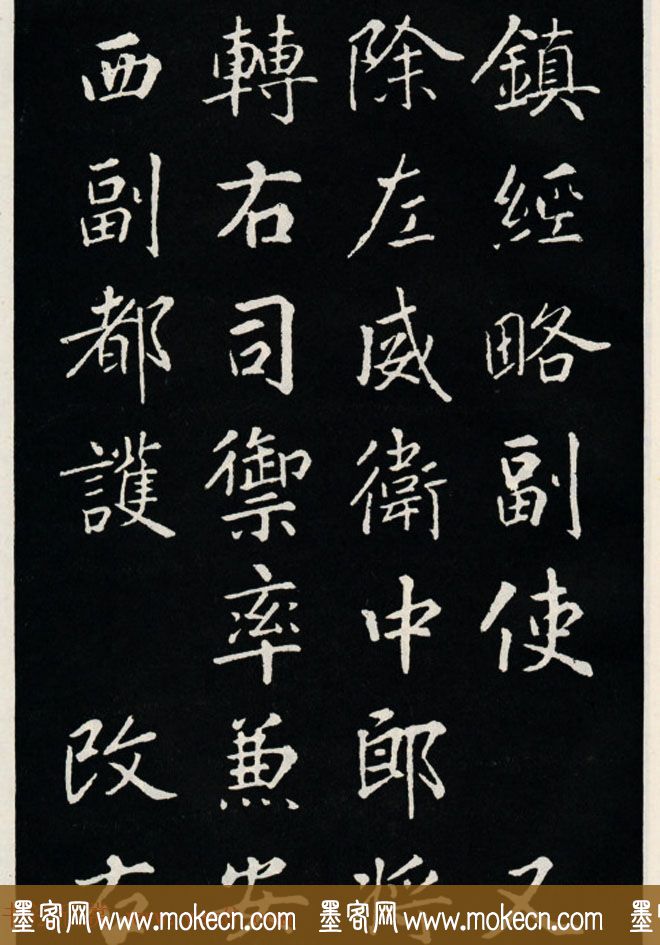 鎮經略副使 又
除左威衛中郎將
轉右司禦率兼安
西副都護 改
墨客网 www.mokecn.com 墨客网 www.mokecn.com